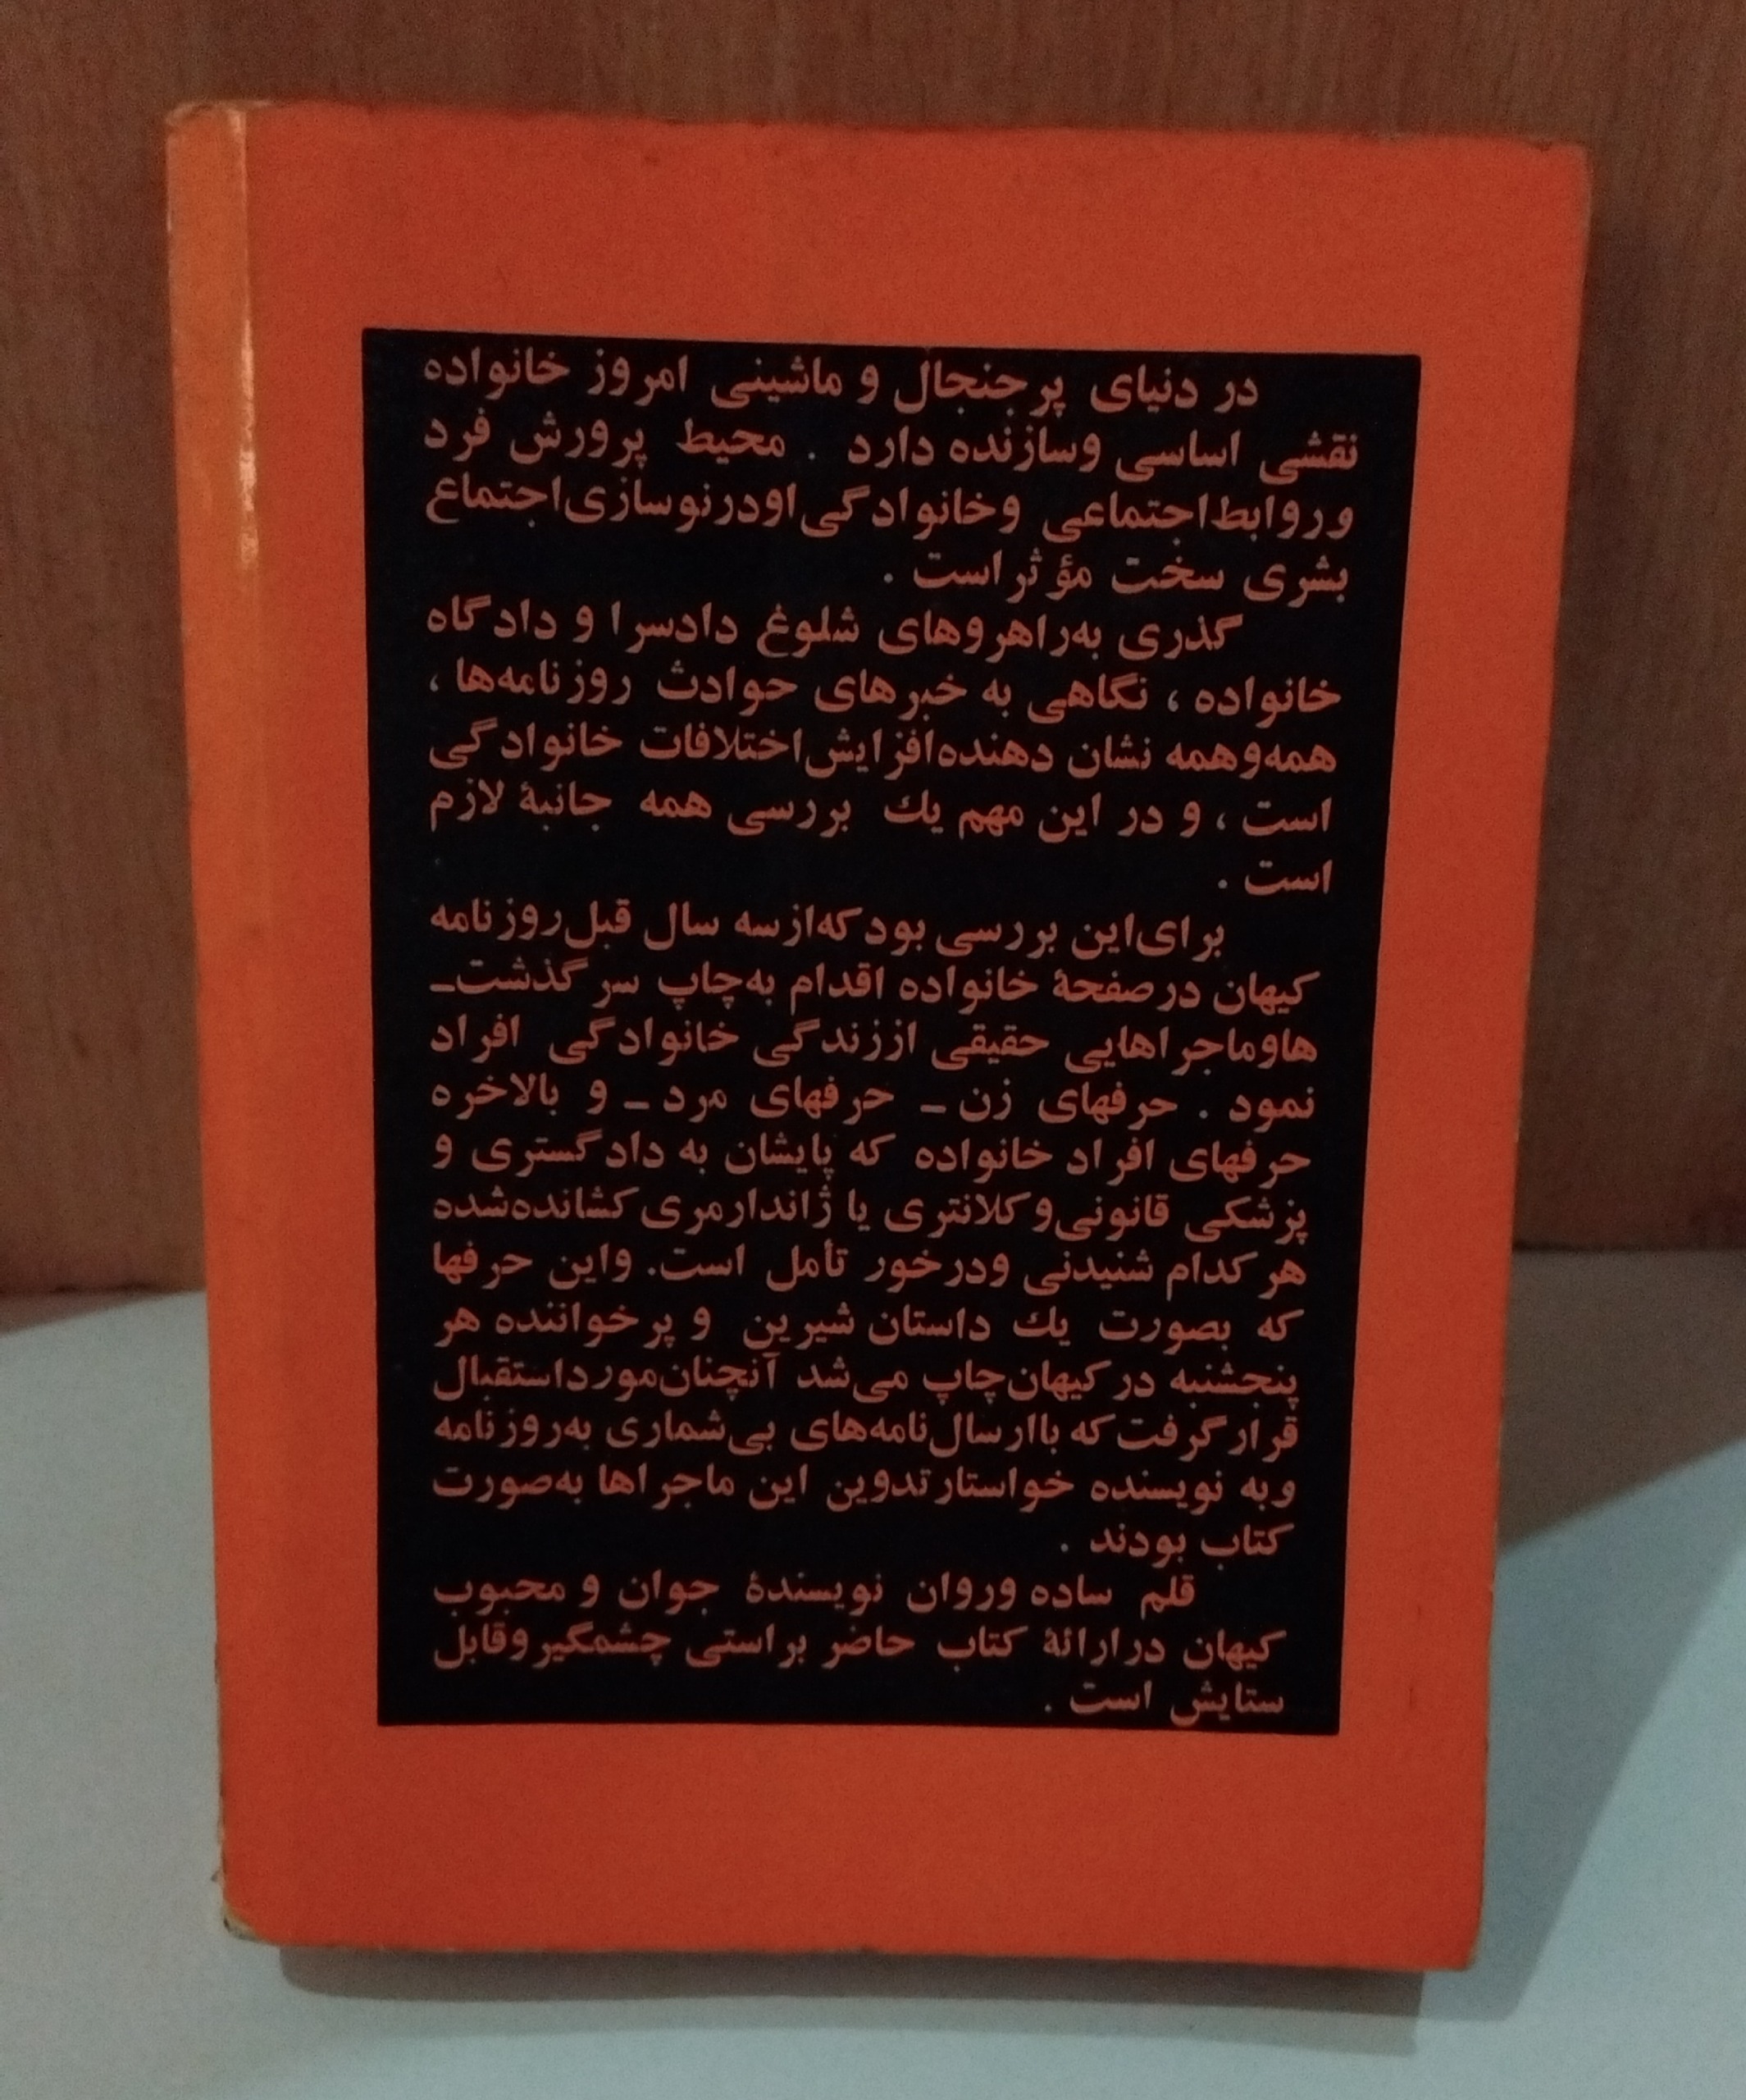 در دنیای پرجنجال و ماشینی امروز خانواده
نقشی اساسی وسازنده دارد . محیط پرورش فرد
وروابط اجتماعی وخانوادگی او در نوسازی اجتماع
بشری سخت مؤثر است .
گذری به راهروهای شلوغ دادسرا و دادگاه
خانواده ، نگاهی به خبرهای حوادث روزنامه‌ها ،
همه وهمه نشان دهنده افزایش اختلافات خانوادگی
است ، و در این مهم یك بررسی همه جانبهٔ لازم
است .
برای این بررسی بود که از سه سال قبل روزنامه
کیهان در صفحهٔ خانواده اقدام به چاپ سرگذشت‌ـ
ها و ماجراهایی حقیقی از زندگی خانوادگی افراد
نمود . حرفهای زن ـ حرفهای مرد ـ و بالاخره
حرفهای افراد خانواده که پایشان به دادگستری و
پزشکی قانونی و کلانتری یا ژاندارمری کشانده شده
هر کدام شنیدنی ودرخور تأمل است. واین حرفها
که بصورت یك داستان شیرین و پرخواننده هر
پنجشنبه در کیهان چاپ می‌شد آنچنان مورد استقبال
قرار گرفت که با ارسال نامه‌های بی‌شماری به روزنامه
وبه نویسنده خواستار تدوین این ماجراها به صورت
کتاب بودند .
قلم ساده وروان نویسندهٔ جوان و محبوب
کیهان در ارائهٔ کتاب حاضر براستی چشمگیر وقابل
ستایش است .